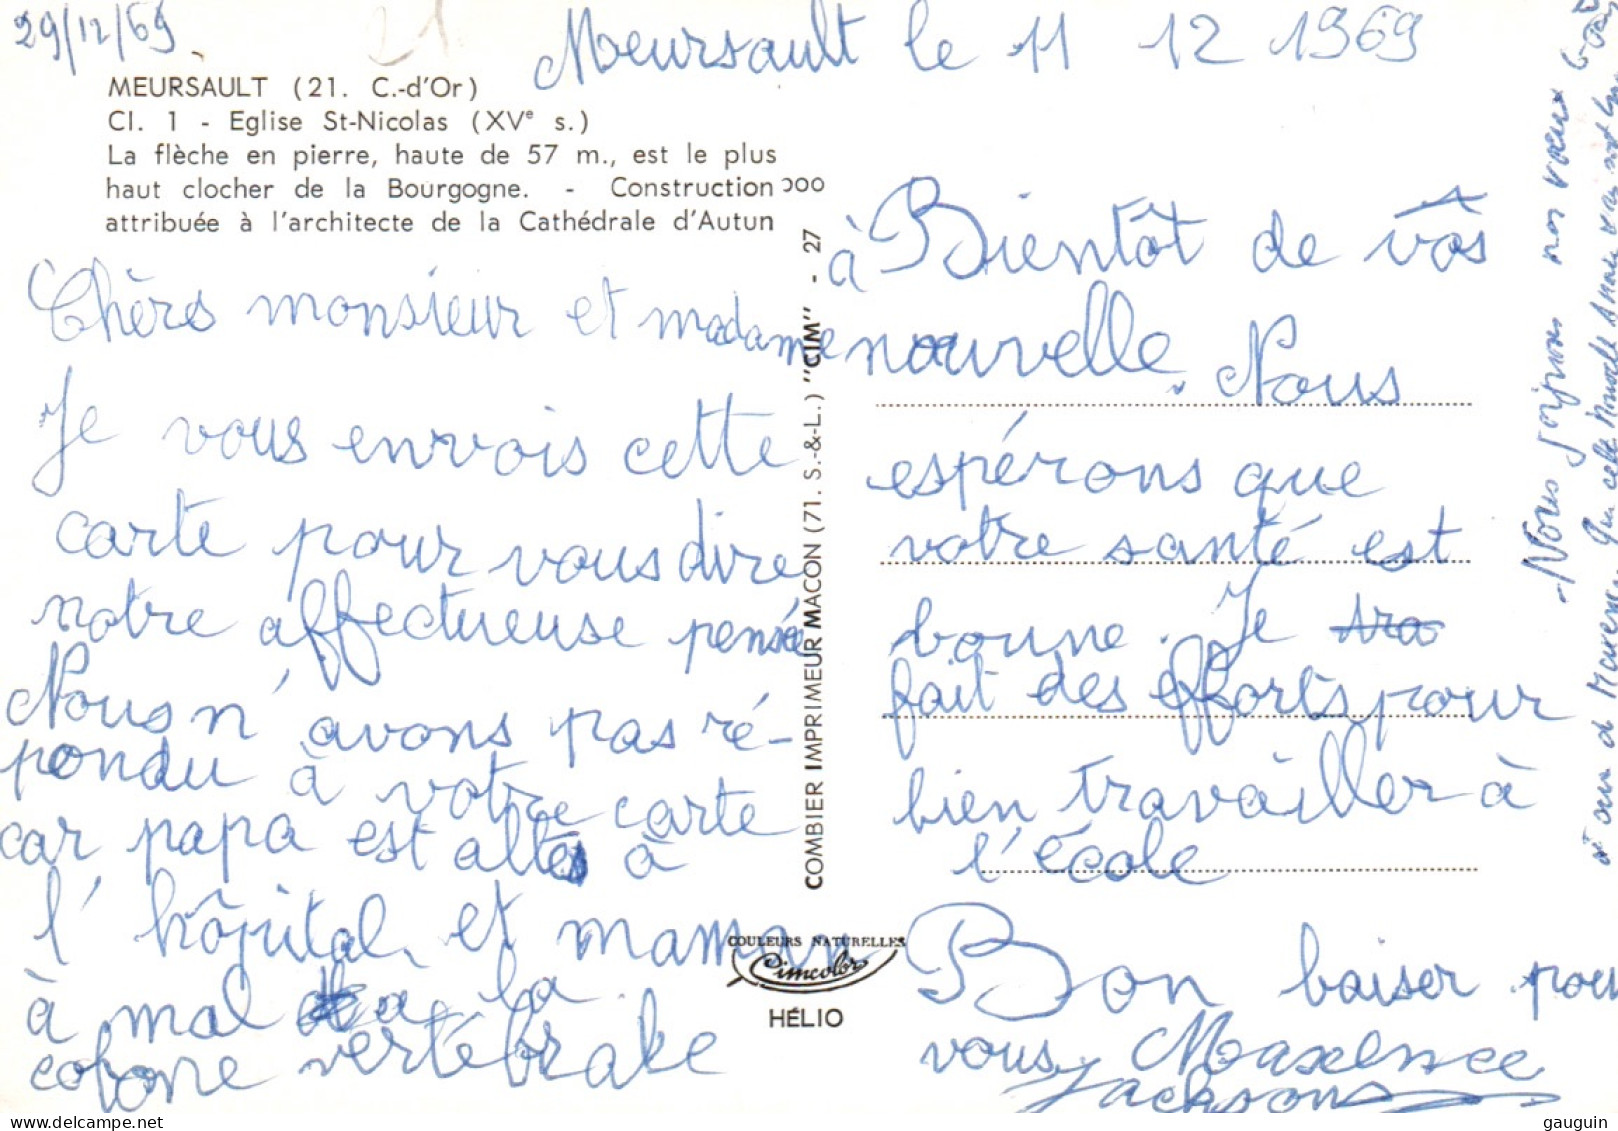 29/12/69
21
Meursault le 11 12 1969
MEURSAULT (21. C.-d'Or)
Cl. 1 - Eglise St-Nicolas (XVe s.)
La flèche en pierre, haute de 57 m., est le plus
haut clocher de la Bourgogne. - Construction
attribuée à l'architecte de la Cathédrale d'Autun
Chèrs monsieur et madame
Je vous envois cette
carte pour vous dire
notre affectueuse pensée
Nous n'avons pas ré-
pondu à votre carte
car papa est allé à
l'hôpital et maman
à mal a la
colone vertébrale
COMBIER IMPRIMEUR MACON (71. S.-&-L.) "CIM" - 27
COULEURS NATURELLES
Cimcolor
HÉLIO
à Bientôt de vôs
nouvelle. Nous
espérons que
votre santé est
bonne. Je
fait des efforts pour
bien travailler à
l'école
Bon baiser pour
vous Maxence
Jackson
- Nous joignons nos vœux
Que cette Nouvelle Année vous soit
gauguin